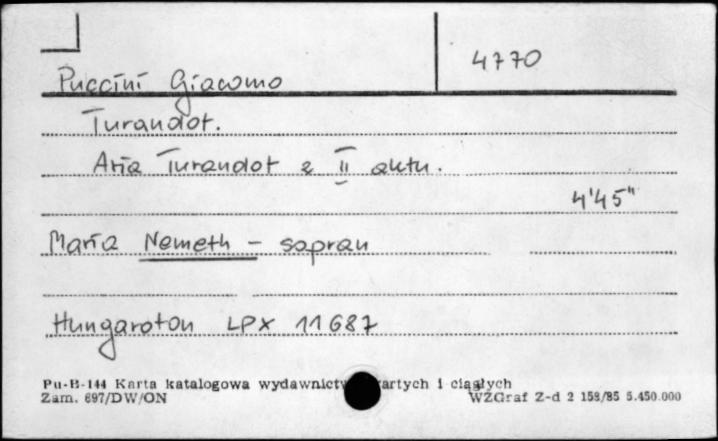 4770
Puccini Giacomo
Turandot.
Aria Turandot z II aktu.
4'45"
Maria Nemeth - sopran
Hungaroton LPX 11687
Pu-B-144 Karta katalogowa i ciągłych
Zam. 697/DW/ON WZGraf Z-d 2 158/85 5.450.000